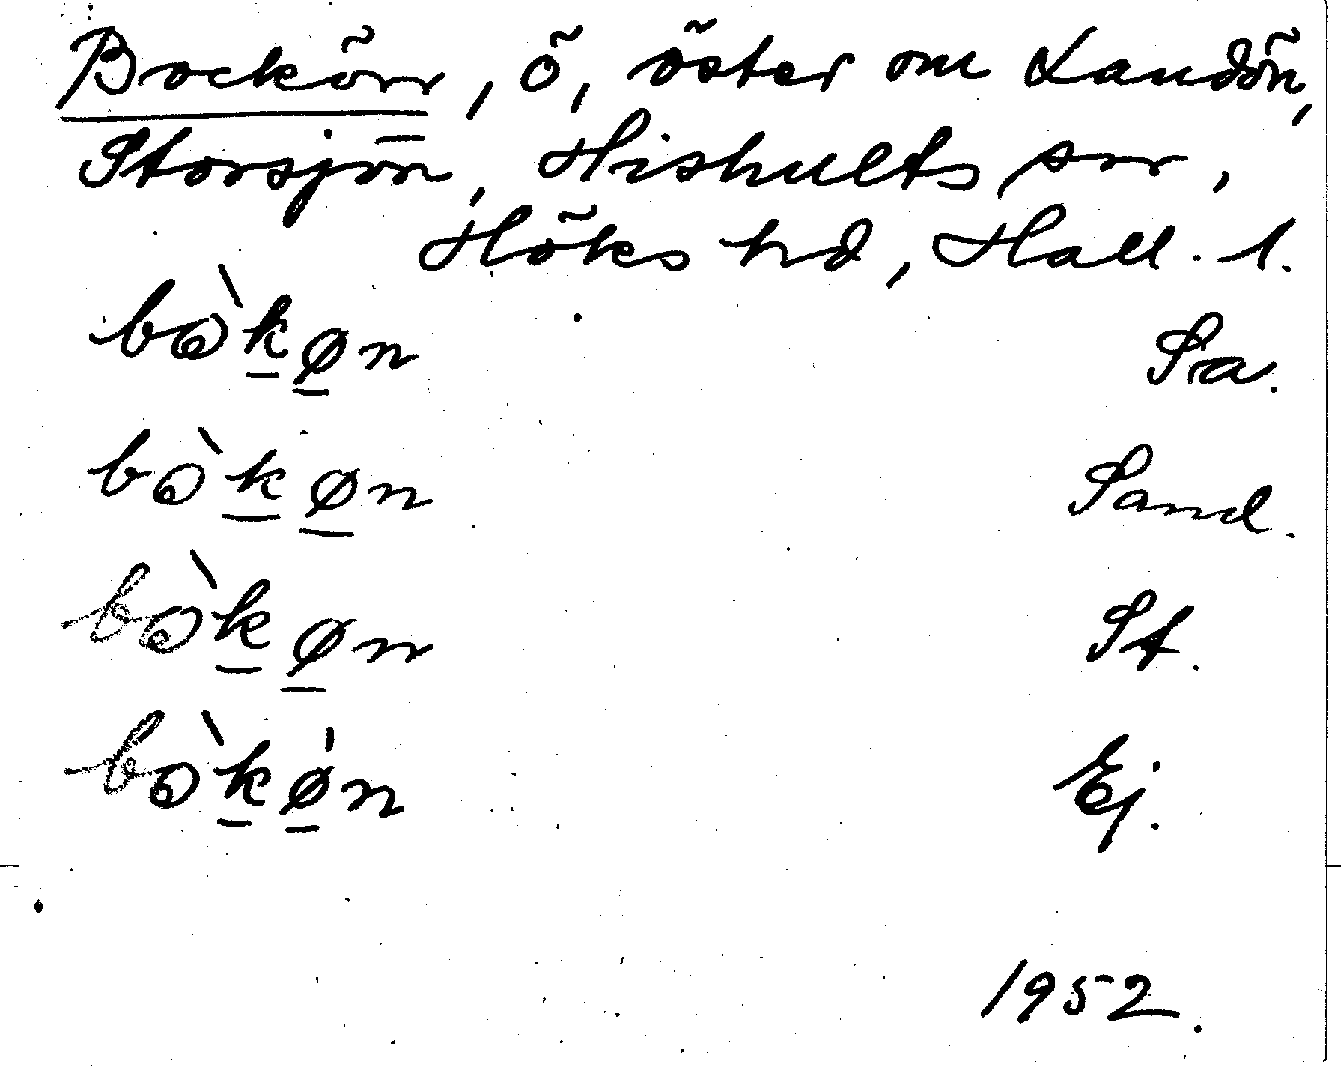 Bockön, ö, öster om Landön,
Storsjön, Hishults sn,
Höks hd, Hall. l.
bòk̲ø̲n Sa.
bòk̲ø̲n Sand.
bòk̲ø̲n St.
bòk̲ø̲̍n Ej.
1952.